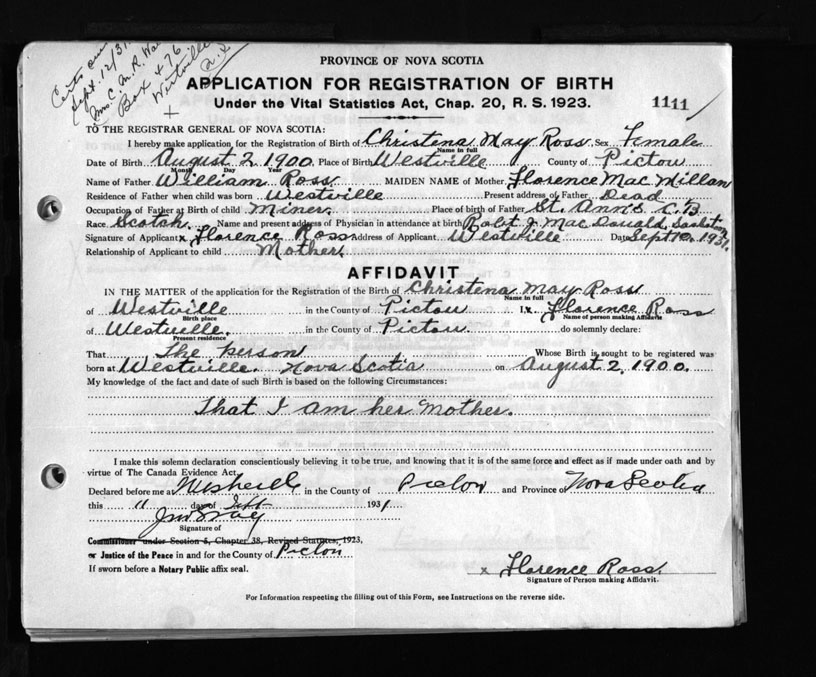 Sept. 12/31
Mrs. C. M. R.
Box 476
Westville
N.S.
PROVINCE OF NOVA SCOTIA
APPLICATION FOR REGISTRATION OF BIRTH
Under the Vital Statistics Act, Chap. 20, R. S. 1923.
1111
TO THE REGISTRAR GENERAL OF NOVA SCOTIA:
I hereby make application for the Registration of Birth of Christena May Ross Sex Female
Name in full
Date of Birth August 2 1900. Place of Birth Westville County of Pictou
Month Day Year
Name of Father William Ross MAIDEN NAME of Mother Florence MacMillan
Residence of Father when child was born Westville Present address of Father Dead
Occupation of Father at Birth of child Miner. Place of birth of Father St. Ann's C.B
Race Scotch. Name and present address of Physician in attendance at birth Robt J. MacDonald, Saskatoon
Signature of Applicant x Florence Ross Address of Applicant Westville Date Sept 10. 1931.
Relationship of Applicant to child Mother
AFFIDAVIT
IN THE MATTER of the application for the Registration of the Birth of Christena May Ross
Name in full
of Westville in the County of Pictou I, x Florence Ross
Birth place Name of person making Affidavit
of Westville. in the County of Pictou. do solemnly declare:
Present residence
That The person Whose Birth is sought to be registered was
born at Westville. Nova Scotia on August 2, 1900.
My knowledge of the fact and date of such Birth is based on the following Circumstances:
That I am her Mother.
I make this solemn declaration conscientiously believing it to be true, and knowing that it is of the same force and effect as if made under oath and by
virtue of The Canada Evidence Act.
Declared before me at Westville in the County of Pictou and Province of Nova Scotia
this 11 day of Sept 1931
Signature of
Commissioner under Section 5, Chapter 38, Revised Statutes, 1923,
or Justice of the Peace in and for the County of Pictou
If sworn before a Notary Public affix seal.
x Florence Ross.
Signature of Person making Affidavit.
For Information respecting the filling out of this Form, see Instructions on the reverse side.